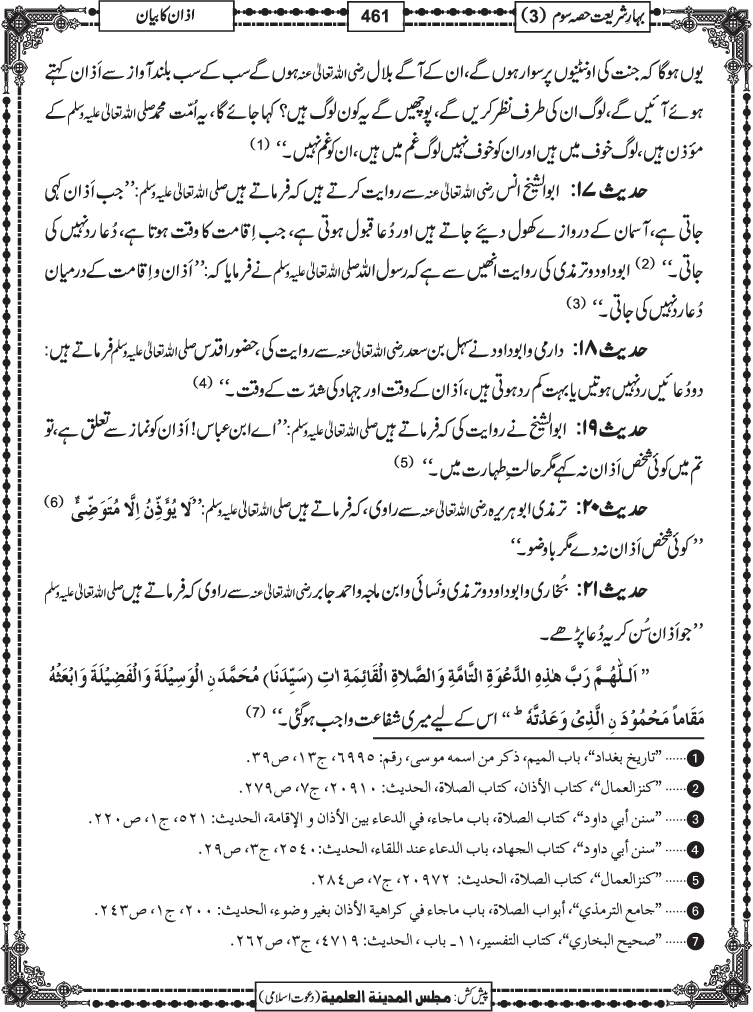 بہارِ شریعت حصہ سوم (3)
461
اذان کا بیان
یوں ہوگا کہ جنت کی اونٹنیوں پر سوار ہوں گے، ان کے آگے بلال رضی اللہ تعالیٰ عنہ ہوں گے سب کے سب بلند آواز سے اَذان کہتے
ہوئے آئیں گے، لوگ ان کی طرف نظر کریں گے، پوچھیں گے یہ کون لوگ ہیں؟ کہا جائے گا، یہ اُمّت محمد صلی اللہ تعالیٰ علیہ وسلم کے
مؤذن ہیں، لوگ خوف میں ہیں اور ان کو خوف نہیں لوگ غم میں ہیں، ان کو غم نہیں۔‘‘ (1)
حدیث ۱۷: ابو الشیخ انس رضی اللہ تعالیٰ عنہ سے روایت کرتے ہیں کہ فرماتے ہیں صلی اللہ تعالیٰ علیہ وسلم: ’’جب اَذان کہی
جاتی ہے، آسمان کے دروازے کھول دیئے جاتے ہیں اور دُعا قبول ہوتی ہے، جب اِقامت کا وقت ہوتا ہے، دُعا رد نہیں کی
جاتی۔‘‘ (2) ابو داود و ترمذی کی روایت انھیں سے ہے کہ رسول اللہ صلی اللہ تعالیٰ علیہ وسلم نے فرمایا کہ: ’’اَذان و اِقامت کے درمیان
دُعا رد نہیں کی جاتی۔‘‘ (3)
حدیث ۱۸: دارمی و ابو داود نے سہل بن سعد رضی اللہ تعالیٰ عنہ سے روایت کی، حضور اقدس صلی اللہ تعالیٰ علیہ وسلم فرماتے ہیں:
دو دُعائیں رد نہیں ہوتیں یا بہت کم رد ہوتی ہیں، اَذان کے وقت اور جہاد کی شدّت کے وقت۔‘‘ (4)
حدیث ۱۹: ابو الشیخ نے روایت کی کہ فرماتے ہیں صلی اللہ تعالیٰ علیہ وسلم: ’’اے ابن عباس! اَذان کو نماز سے تعلق ہے، تو
تم میں کوئی شخص اَذان نہ کہے مگر حالتِ طہارت میں۔‘‘ (5)
حدیث ۲۰: ترمذی ابو ہریرہ رضی اللہ تعالیٰ عنہ سے راوی، کہ فرماتے ہیں صلی اللہ تعالیٰ علیہ وسلم: ’’لَا یُؤَذِّنُ اِلَّا مُتَوَضِّیٌٔ (6)
’’کوئی شخص اَذان نہ دے مگر باوضو۔‘‘
حدیث ۲۱: بُخاری و ابو داود و ترمذی و نَسائی و ابن ماجہ و احمد جابر رضی اللہ تعالیٰ عنہ سے راوی کہ فرماتے ہیں صلی اللہ تعالیٰ علیہ وسلم
’’جو اَذان سُن کر یہ دُعا پڑھے۔
” اَللّٰھُمَّ رَبَّ ھٰذِہِ الدَّعْوَۃِ التَّامَّۃِ وَالصَّلاۃِ الْقَائِمَۃِ اٰتِ (سَیِّدَنَا) مُحَمَّدَنِ الْوَسِیْلَۃَ وَالْفَضِیْلَۃَ وَابْعَثْہُ
مَقَاماً مَحْمُوْدَ نِ الَّذِیْ وَعَدْتَّہٗ ط “ اس کے لیے میری شفاعت واجب ہوگئی۔‘‘ (7)
1 ...... ”تاريخ بغداد“، باب الميم، ذكر من اسمه موسى، رقم: ٦٩٩٥، ج١٣، ص٣٩.
2 ...... ”كنزالعمال“، كتاب الأذان، كتاب الصلاة، الحديث: ٢٠٩١٠، ج٧، ص٢٧٩.
3 ...... ”سنن أبي داود“، كتاب الصلاة، باب ماجاء، في الدعاء بين الأذان و الإقامة، الحديث: ٥٢١، ج١، ص٢٢٠.
4 ...... ”سنن أبي داود“، كتاب الجهاد، باب الدعاء عند اللقاء، الحديث: ٢٥٤٠، ج٣، ص٢٩.
5 ...... ”كنزالعمال“، كتاب الصلاة، الحديث: ٢٠٩٧٢، ج٧، ص٢٨٤.
6 ...... ”جامع الترمذي“، أبواب الصلاة، باب ماجاء في كراهية الأذان بغير وضوء، الحديث: ٢٠٠، ج١، ص٢٤٣.
7 ...... ”صحيح البخاري“، كتاب التفسير، ١١ـ باب ، الحديث: ٤٧١٩، ج٣، ص٢٦٢.
پیش کش: مجلس المدینۃ العلمیۃ (دعوتِ اسلامی)